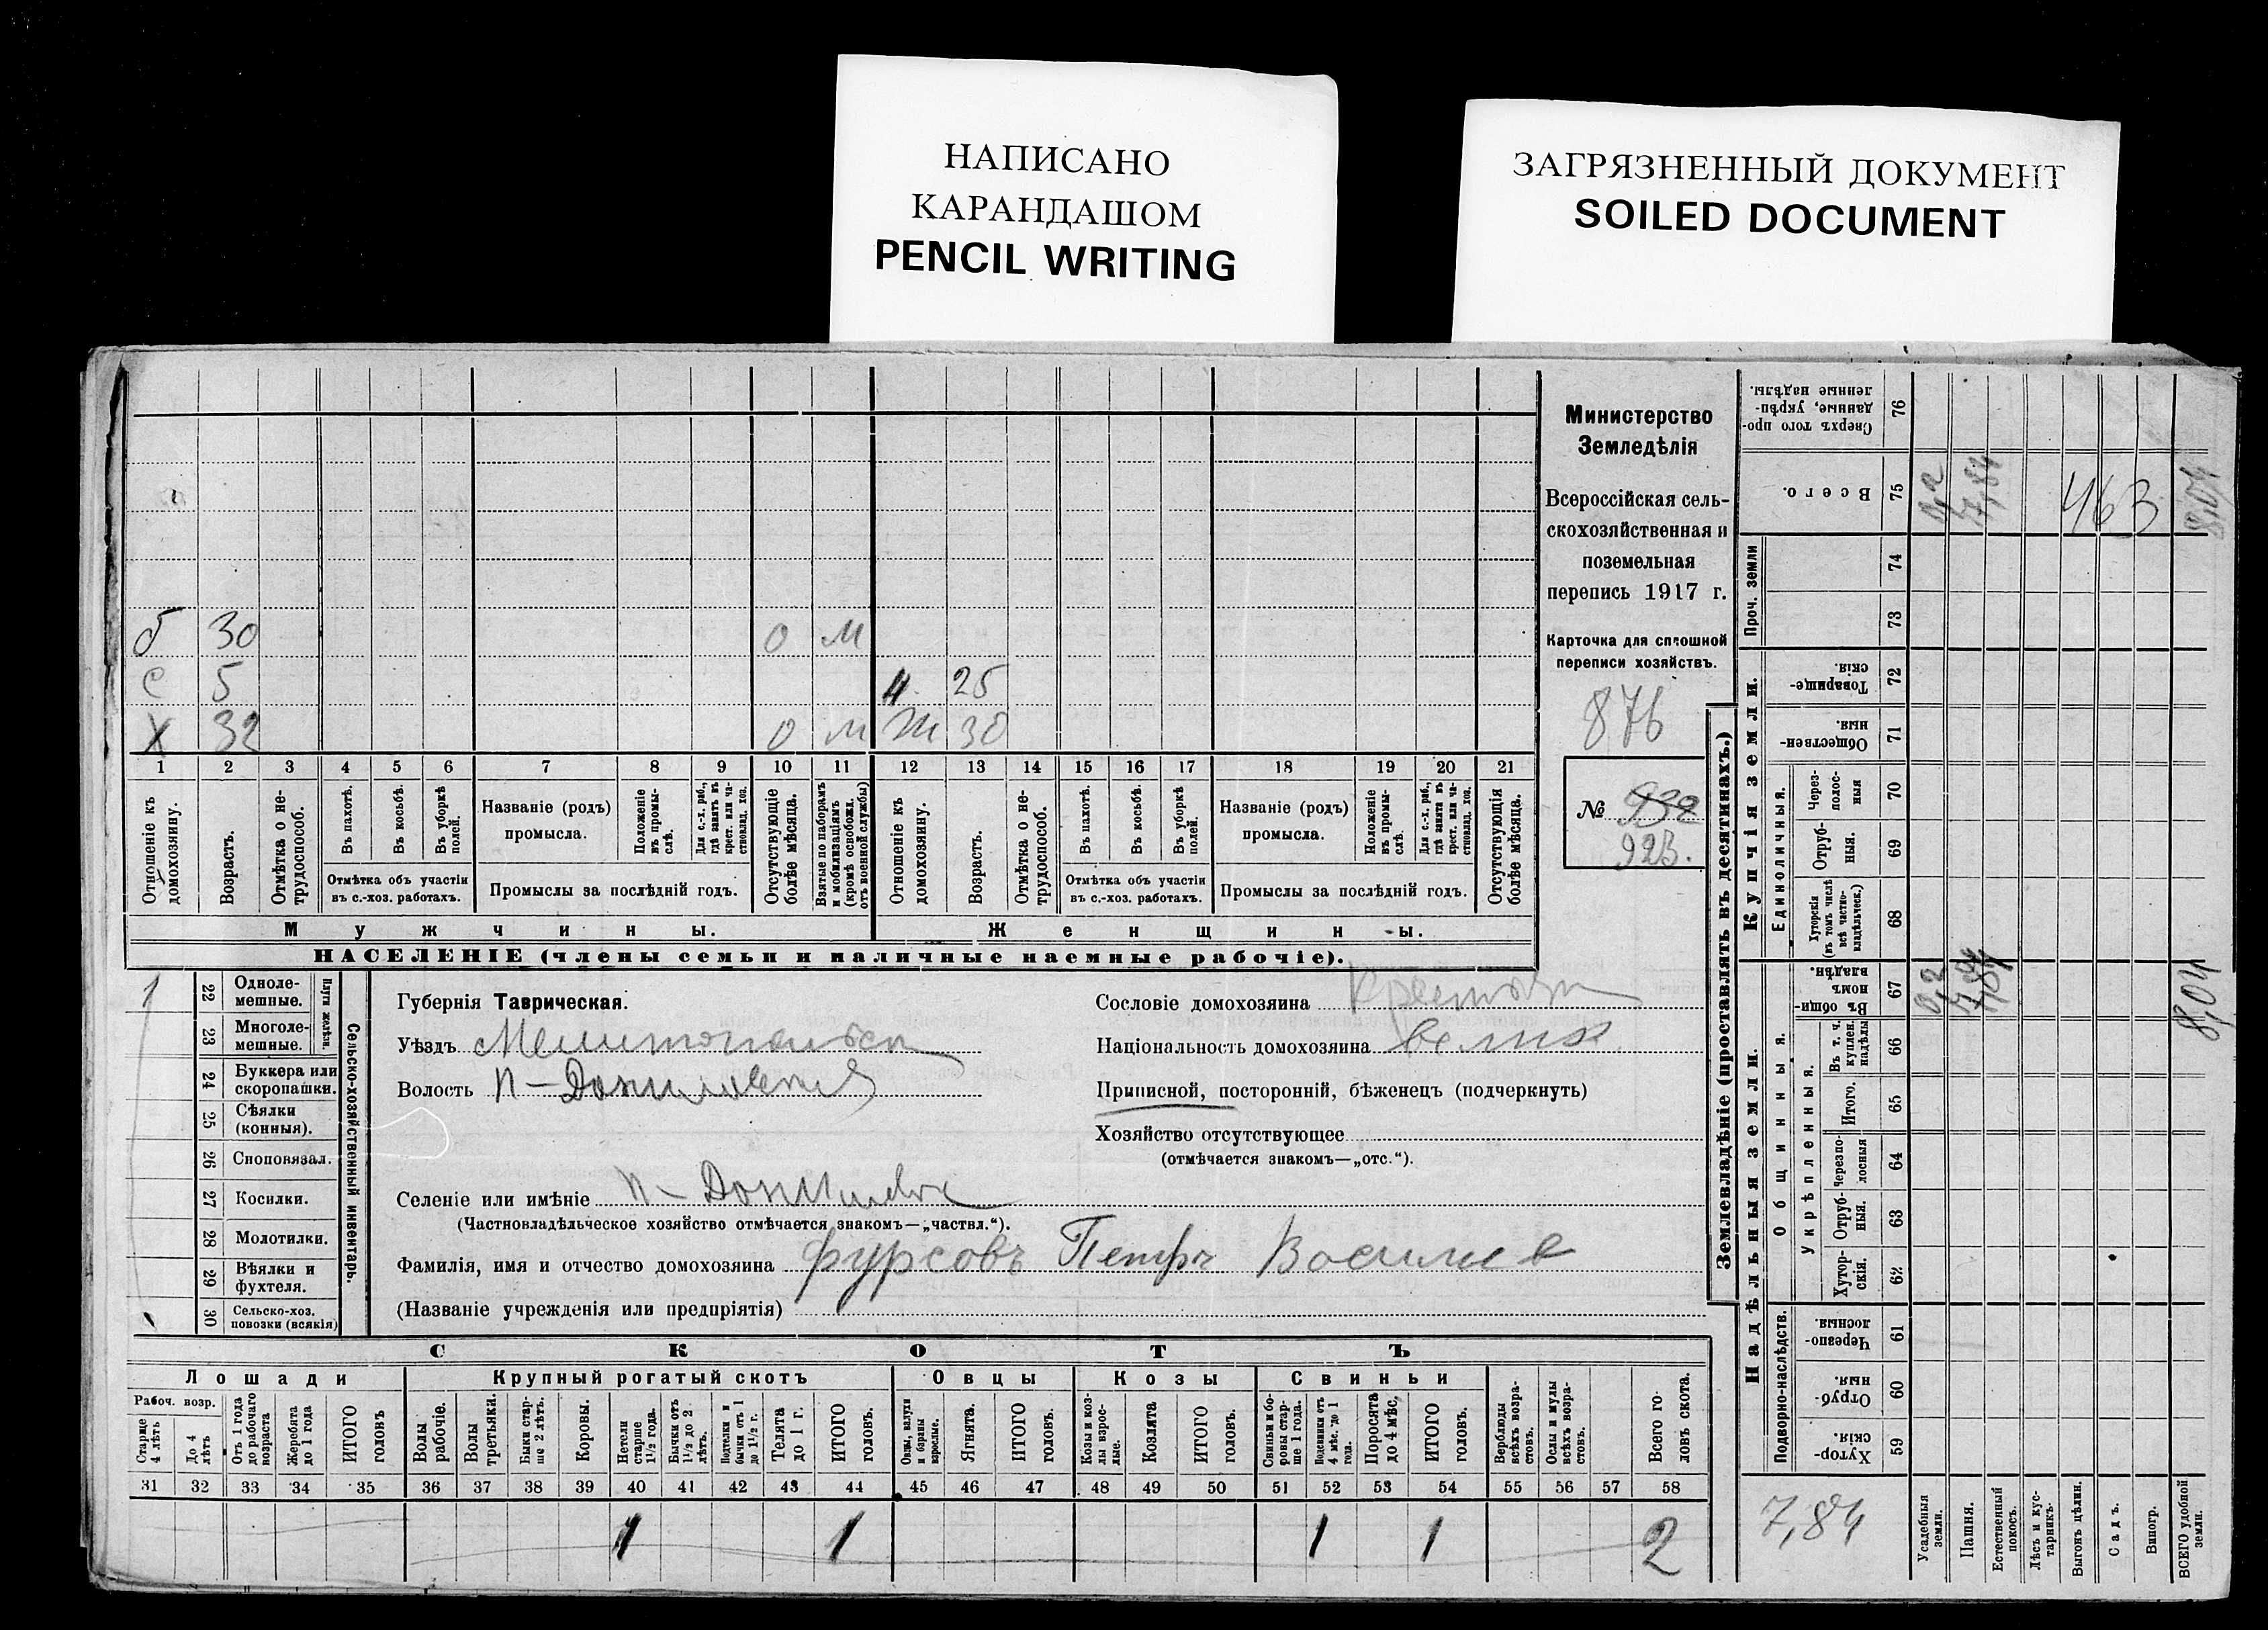 НАПИСАНО
КАРАНДАШОМ
PENCIL WRITING
ЗАГРЯЗНЕННЫЙ ДОКУМЕНТ
SOILED DOCUMENT
Министерство
Земледѣлія
Всероссійская сель-
скохозяйственная и
поземельная
перепись 1917 г.
Карточка для сплошной
переписи хозяйствъ.
876
№ 932
923.
б 30 О М
с 5 25
Х 32 О М Ж 30
1 2 3 4 5 6 7 8 9 10 11 12 13 14 15 16 17 18 19 20 21
Отношеніе къ домохозяину.
Возрастъ.
Отмѣтка о не-трудоспособ.
Въ пахотѣ.
Въ косьбѣ.
Въ уборкѣ полей.
Отмѣтка объ участіи
въ с.-хоз. работахъ.
Названіе (родъ)
промысла.
Положеніе въ промы-слѣ.
Для с.-х. раб., гдѣ занятъ въ крест. или ча-стновлад. хоз.
Промыслы за послѣдній годъ.
Отсутствующіе болѣе мѣсяца.
Взятые по наборамъ и мобилизаціямъ (кромѣ освобожд. отъ военной службы)
Отношеніе къ домохозяину.
Возрастъ.
Отмѣтка о не-трудоспособ.
Въ пахотѣ.
Въ косьбѣ.
Въ уборкѣ полей.
Отмѣтка объ участіи
въ с.-хоз. работахъ.
Названіе (родъ)
промысла.
Положеніе въ промы-слѣ.
Для с.-х. раб., гдѣ занятъ въ крест. или ча-стновлад. хоз.
Промыслы за послѣдній годъ.
Отсутствующія болѣе мѣсяца.
Мужчины. Женщины.
НАСЕЛЕНІЕ (члены семьи и наличные наемные рабочіе).
1 22 Одноле-мешные.
23 Многоле-мешные.
Плуги желѣзн.
24 Буккера или скоропашки.
25 Сѣялки (конныя).
26 Сноповязал.
27 Косилки.
28 Молотилки.
29 Вѣялки и фухтеля.
30 Сельско-хоз. повозки (всякія)
Сельско-хозяйственный инвентарь.
Губернія Таврическая.
Уѣздъ Мелитопольск
Волость П-Даниловская
Селеніе или имѣніе П-Даниловка
(Частновладѣльческое хозяйство отмѣчается знакомъ—„частвл.“).
Фамилія, имя и отчество домохозяина Фурсовъ Петръ Василиев
(Названіе учрежденія или предпріятія)
Сословіе домохозяина крестьян
Національность домохозяина велик
Приписной, посторонній, бѣженецъ (подчеркнуть)
Хозяйство отсутствующее
(отмѣчается знакомъ—„отс.“).
СКОТЪ
Лошади Крупный рогатый скотъ Овцы Козы Свиньи
Рабоч. возр.
Старше 4 лѣтъ
До 4 лѣтъ
Отъ 1 года до рабочаго возраста
Жеребята до 1 года
ИТОГО головъ
Волы рабочіе.
Волы третьяки.
Быки стар-ше 2 лѣтъ.
Коровы.
Нетели старше 1½ года.
Бычки отъ 1½ до 2 лѣтъ.
Подтелки и бычки отъ 1 до 1½ г.
Телята до 1 г.
ИТОГО головъ.
Овцы, валухи и бараны взрослые.
Ягнята.
ИТОГО головъ.
Козы и коз-лы взрос-лые.
Козлята
ИТОГО головъ.
Свиньи и бо-ровы стар-ше 1 года.
Подсвинки отъ 4 мѣс. до 1 года.
Поросята до 4 мѣс.
ИТОГО головъ.
Верблюды всѣхъ возра-стовъ.
Ослы и мулы всѣхъ возра-стовъ.
Всего го-ловъ скота.
31 32 33 34 35 36 37 38 39 40 41 42 43 44 45 46 47 48 49 50 51 52 53 54 55 56 57 58
1 1 1 1 2
Землевладѣніе (проставлять въ десятинахъ.)
Надѣльныя земли. Купчія земли.
Сверхъ того про-данные, укрѣп-ленные надѣлы. 76
Всего. 75 0,2 7,84 463 8,04
Проч. земли 74
73
Товарище-скія. 72
Обществен-ныя. 71
Единоличныя.
Через-полос-ныя 70
Отруб-ныя. 69
Хуторскія (въ томъ числѣ всѣ частно-владѣльческ.) 68
Общинныя.
Въ общин-номъ владѣн. 67 0,2 7,84 8,04
Укрѣпленныя.
Въ т. ч. куплен. надѣлы 66
Итого. 65
Черезпо-лосныя 64
Отруб-ныя. 63
Хутор-скія. 62
Подворно-наслѣдств.
Черезпо-лосныя. 61
Отруб-ныя. 60
Хутор-скія. 59
7,84
Усадебныя земли.
Пашня.
Естественный покосъ.
Лѣсъ и кус-тарникъ.
Выгонъ цѣлин.
Садъ.
Виногр.
ВСЕГО удобной земли.